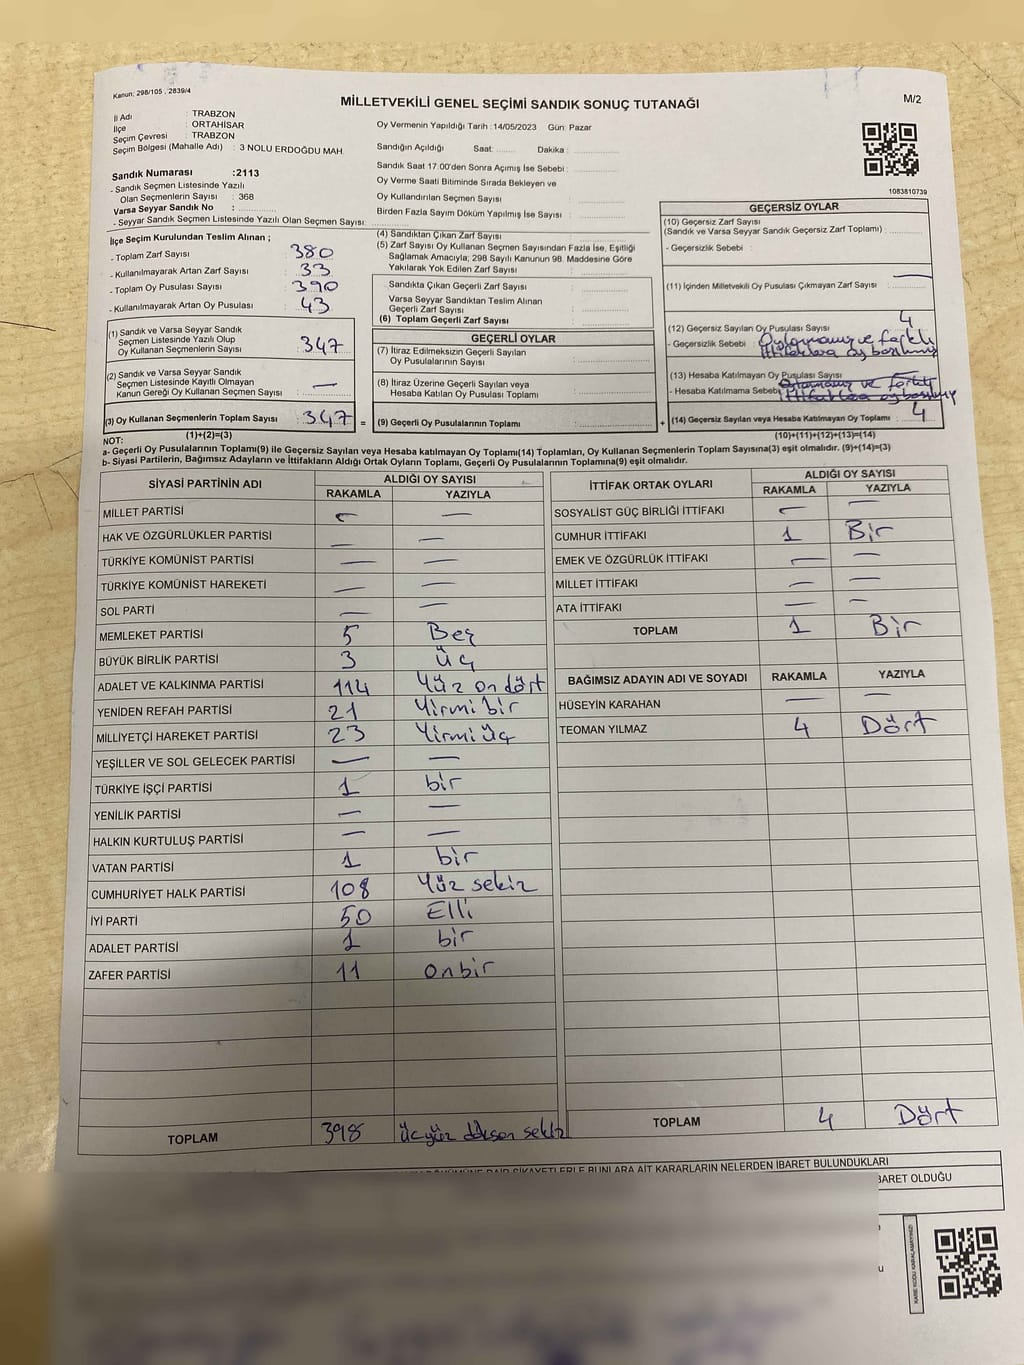 Kanun: 298/105 , 2839/4
MİLLETVEKİLİ GENEL SEÇİMİ SANDIK SONUÇ TUTANAĞI
M/2
İl Adı : TRABZON
İlçe : ORTAHİSAR
Seçim Çevresi : TRABZON
Seçim Bölgesi (Mahalle Adı) : 3 NOLU ERDOĞDU MAH.
Sandık Numarası :2113
- Sandık Seçmen Listesinde Yazılı
Olan Seçmenlerin Sayısı : 368
Varsa Seyyar Sandık No :
- Seyyar Sandık Seçmen Listesinde Yazılı Olan Seçmen Sayısı:
Oy Vermenin Yapıldığı Tarih :14/05/2023 Gün: Pazar
Sandığın Açıldığı Saat: Dakika :
Sandık Saat 17:00'den Sonra Açımış İse Sebebi :
Oy Verme Saati Bitiminde Sırada Bekleyen ve
Oy Kullandırılan Seçmen Sayısı :
Birden Fazla Sayım Döküm Yapılmış İse Sayısı :
1083810739
İlçe Seçim Kurulundan Teslim Alınan ;
- Toplam Zarf Sayısı : 380
- Kullanılmayarak Artan Zarf Sayısı : 33
- Toplam Oy Pusulası Sayısı : 390
- Kullanılmayarak Artan Oy Pusulası : 43
(1) Sandık ve Varsa Seyyar Sandık
Seçmen Listesinde Yazılı Olup
Oy Kullanan Seçmenlerin Sayısı : 347
(2) Sandık ve Varsa Seyyar Sandık
Seçmen Listesinde Kayıtlı Olmayan
Kanun Gereği Oy Kullanan Seçmen Sayısı : —
(3) Oy Kullanan Seçmenlerin Toplam Sayısı : 347
(1)+(2)=(3)
(4) Sandıktan Çıkan Zarf Sayısı :
(5) Zarf Sayısı Oy Kullanan Seçmen Sayısından Fazla İse, Eşitliği
Sağlamak Amacıyla; 298 Sayılı Kanunun 98. Maddesine Göre
Yakılarak Yok Edilen Zarf Sayısı :
Sandıkta Çıkan Geçerli Zarf Sayısı :
Varsa Seyyar Sandıktan Teslim Alınan
Geçerli Zarf Sayısı :
(6) Toplam Geçerli Zarf Sayısı :
GEÇERLİ OYLAR
(7) İtiraz Edilmeksizin Geçerli Sayılan
Oy Pusulalarının Sayısı :
(8) İtiraz Üzerine Geçerli Sayılan veya
Hesaba Katılan Oy Pusulası Toplamı :
= (9) Geçerli Oy Pusulalarının Toplamı :
GEÇERSİZ OYLAR
(10) Geçersiz Zarf Sayısı
(Sandık ve Varsa Seyyar Sandık Geçersiz Zarf Toplamı) :
- Geçersizlik Sebebi :
(11) İçinden Milletvekili Oy Pusulası Çıkmayan Zarf Sayısı : —
(12) Geçersiz Sayılan Oy Pusulası Sayısı : 4
- Geçersizlik Sebebi : ve farklı
ittifaklara oy basılmış
(13) Hesaba Katılmayan Oy Pusulası Sayısı
- Hesaba Katılmama Sebebi ve farklı
ittifaklara oy basılmış
+ (14) Geçersiz Sayılan veya Hesaba Katılmayan Oy Toplamı : 4
(10)+(11)+(12)+(13)=(14)
NOT:
a- Geçerli Oy Pusulalarının Toplamı(9) ile Geçersiz Sayılan veya Hesaba katılmayan Oy Toplamı(14) Toplamları, Oy Kullanan Seçmenlerin Toplam Sayısına(3) eşit olmalıdır. (9)+(14)=(3)
b- Siyasi Partilerin, Bağımsız Adayların ve İttifakların Aldığı Ortak Oyların Toplamı, Geçerli Oy Pusulalarının Toplamına(9) eşit olmalıdır.
SİYASİ PARTİNİN ADI ALDIĞI OY SAYISI
RAKAMLA YAZIYLA
MİLLET PARTİSİ — —
HAK VE ÖZGÜRLÜKLER PARTİSİ — —
TÜRKİYE KOMÜNİST PARTİSİ — —
TÜRKİYE KOMÜNİST HAREKETİ — —
SOL PARTİ — —
MEMLEKET PARTİSİ 5 Beş
BÜYÜK BİRLİK PARTİSİ 3 Üç
ADALET VE KALKINMA PARTİSİ 114 Yüz on dört
YENİDEN REFAH PARTİSİ 21 Yirmi bir
MİLLİYETÇİ HAREKET PARTİSİ 23 Yirmi üç
YEŞİLLER VE SOL GELECEK PARTİSİ — —
TÜRKİYE İŞÇİ PARTİSİ 1 bir
YENİLİK PARTİSİ — —
HALKIN KURTULUŞ PARTİSİ — —
VATAN PARTİSİ 1 bir
CUMHURİYET HALK PARTİSİ 108 Yüz sekiz
İYİ PARTİ 50 Elli
ADALET PARTİSİ 1 bir
ZAFER PARTİSİ 11 onbir
TOPLAM 398 üçyüz doksan sekiz
İTTİFAK ORTAK OYLARI ALDIĞI OY SAYISI
RAKAMLA YAZIYLA
SOSYALİST GÜÇ BİRLİĞİ İTTİFAKI — —
CUMHUR İTTİFAKI 1 Bir
EMEK VE ÖZGÜRLÜK İTTİFAKI — —
MİLLET İTTİFAKI — —
ATA İTTİFAKI — —
TOPLAM 1 Bir
BAĞIMSIZ ADAYIN ADI VE SOYADI RAKAMLA YAZIYLA
HÜSEYİN KARAHAN — —
TEOMAN YILMAZ 4 Dört
TOPLAM 4 Dört
DÖKÜMÜNE DAİR ŞİKAYETLERLE BUNLARA AİT KARARLARIN NELERDEN İBARET BULUNDUKLARI
BARET OLDUĞU